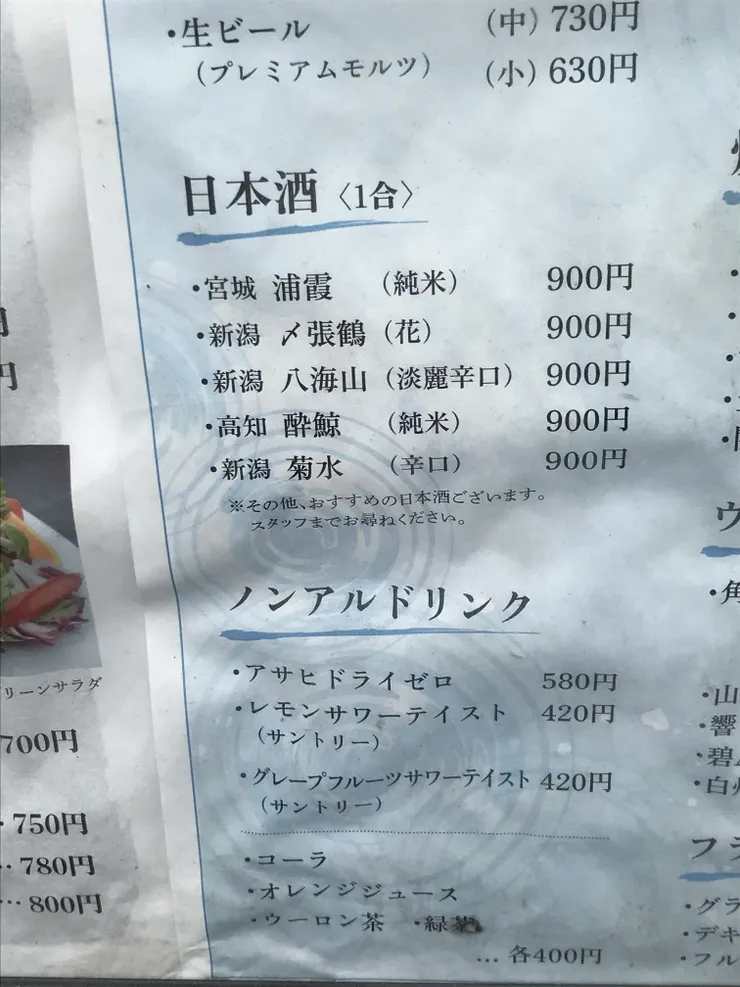 ・生ビール (中) 730円
(プレミアムモルツ) (小) 630円
日本酒〈1合〉
・宮城 浦霞 (純米) 900円
・新潟 〆張鶴 (花) 900円
・新潟 八海山 (淡麗辛口) 900円
・高知 酔鯨 (純米) 900円
・新潟 菊水 (辛口) 900円
※その他、おすすめの日本酒ございます。
スタッフまでお尋ねください。
ノンアルドリンク
・アサヒドライゼロ 580円
・レモンサワーテイスト 420円
(サントリー)
・グレープフルーツサワーテイスト 420円
(サントリー)
・コーラ
・オレンジジュース
・ウーロン茶 ・緑茶
… 各400円
円
リーンサラダ
700円
・750円
‥780円
…800円
ウ
・角
・山
・響
・碧
・白
フラ
・グラ
・デキ
・フル